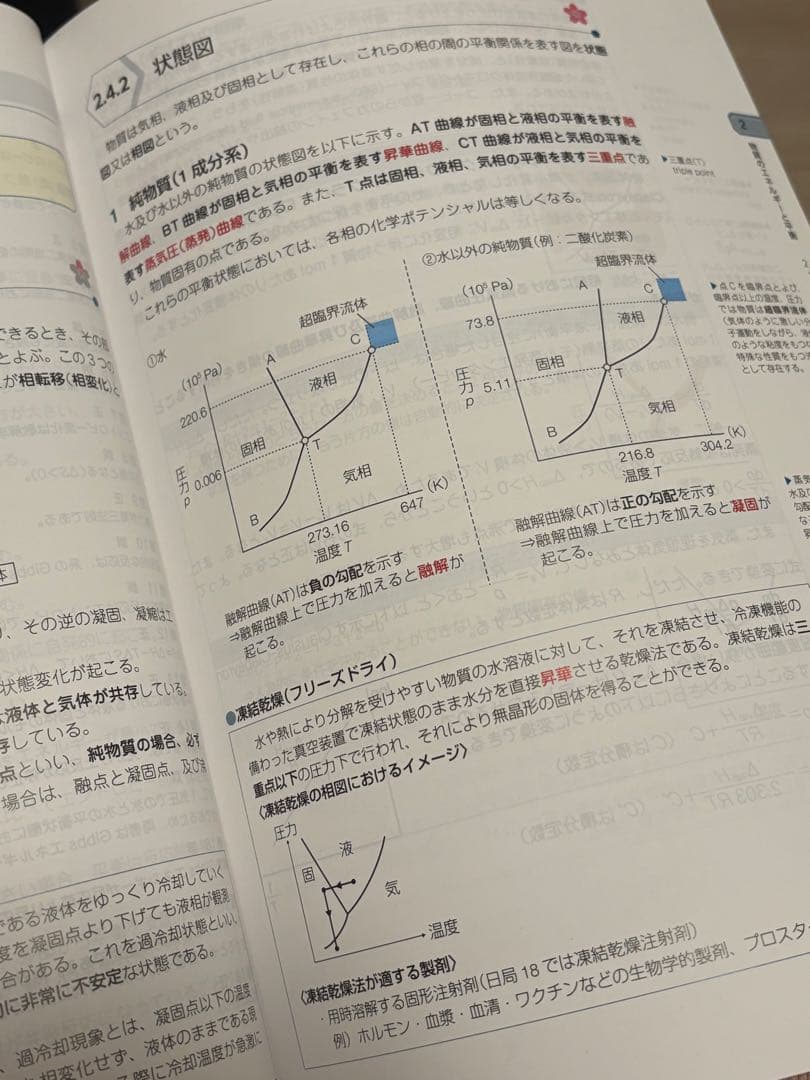 2.4.2 状態図
物質は気相、液相及び固相として存在し、これらの相の間の平衡関係を表す図を状態
図又は相図という。
1 純物質(1成分系)
水及び水以外の純物質の状態図を以下に示す。AT曲線が固相と液相の平衡を表す融
解曲線、BT曲線が固相と気相の平衡を表す昇華曲線、CT曲線が液相と気相の平衡を
表す蒸気圧(蒸発)曲線である。また、T点は固相、液相、気相の平衡を表す三重点であ
り、物質固有の点である。
これらの平衡状態においては、各相の化学ポテンシャルは等しくなる。
①水
(10⁵ Pa)
超臨界流体
A
C
液相
220.6
固相
圧力 p
0.006
T
気相
B
(K)
273.16
647
温度 T
融解曲線(AT)は負の勾配を示す
⇒融解曲線上で圧力を加えると融解が
起こる。
②水以外の純物質(例:二酸化炭素)
(10⁵ Pa)
超臨界流体
A
C
73.8
液相
固相
圧力 p
5.11
T
気相
B
(K)
216.8
304.2
温度 T
融解曲線(AT)は正の勾配を示す
⇒融解曲線上で圧力を加えると凝固が
起こる。
●凍結乾燥(フリーズドライ)
水や熱により分解を受けやすい物質の水溶液に対して、それを凍結させ、冷凍機能の
備わった真空装置で凍結状態のまま水分を直接昇華させる乾燥法である。凍結乾燥は三
重点以下の圧力下で行われ、それにより無晶形の固体を得ることができる。
〈凍結乾燥の相図におけるイメージ〉
圧力
固
液
気
温度
〈凍結乾燥法が適する製剤〉
・用時溶解する固形注射剤(日局18では凍結乾燥注射剤)
例)ホルモン・血漿・血清・ワクチンなどの生物学的製剤、プロスタ
2
物質のエネルギーと平衡
▶三重点(T)
triple point
2
▶点Cを臨界点とよび、
臨界点以上の温度、圧力
では物質は超臨界流体
(気体のように激しい分
子運動をしながら、液
のような密度をもつ
特殊な性質をもつ
として存在する。
▶蒸気
水及び
勾配
なな
できるとき、その
とよぶ。この3つの
が相転移(相変化)と
体
、その逆の凝固、凝縮は
状態変化が起こる。
液体と気体が共存している。
存している。
点といい、純物質の場合、必ず
場合は、融点と凝固点、及び
である液体をゆっくり冷却していく
度を凝固点より下げても液相が観測
合がある。これを過冷却状態といい、
的に非常に不安定な状態である。
、過冷却現象とは、凝固点以下の温度
相変化せず、液体のままである現
際に冷却温度が急激に